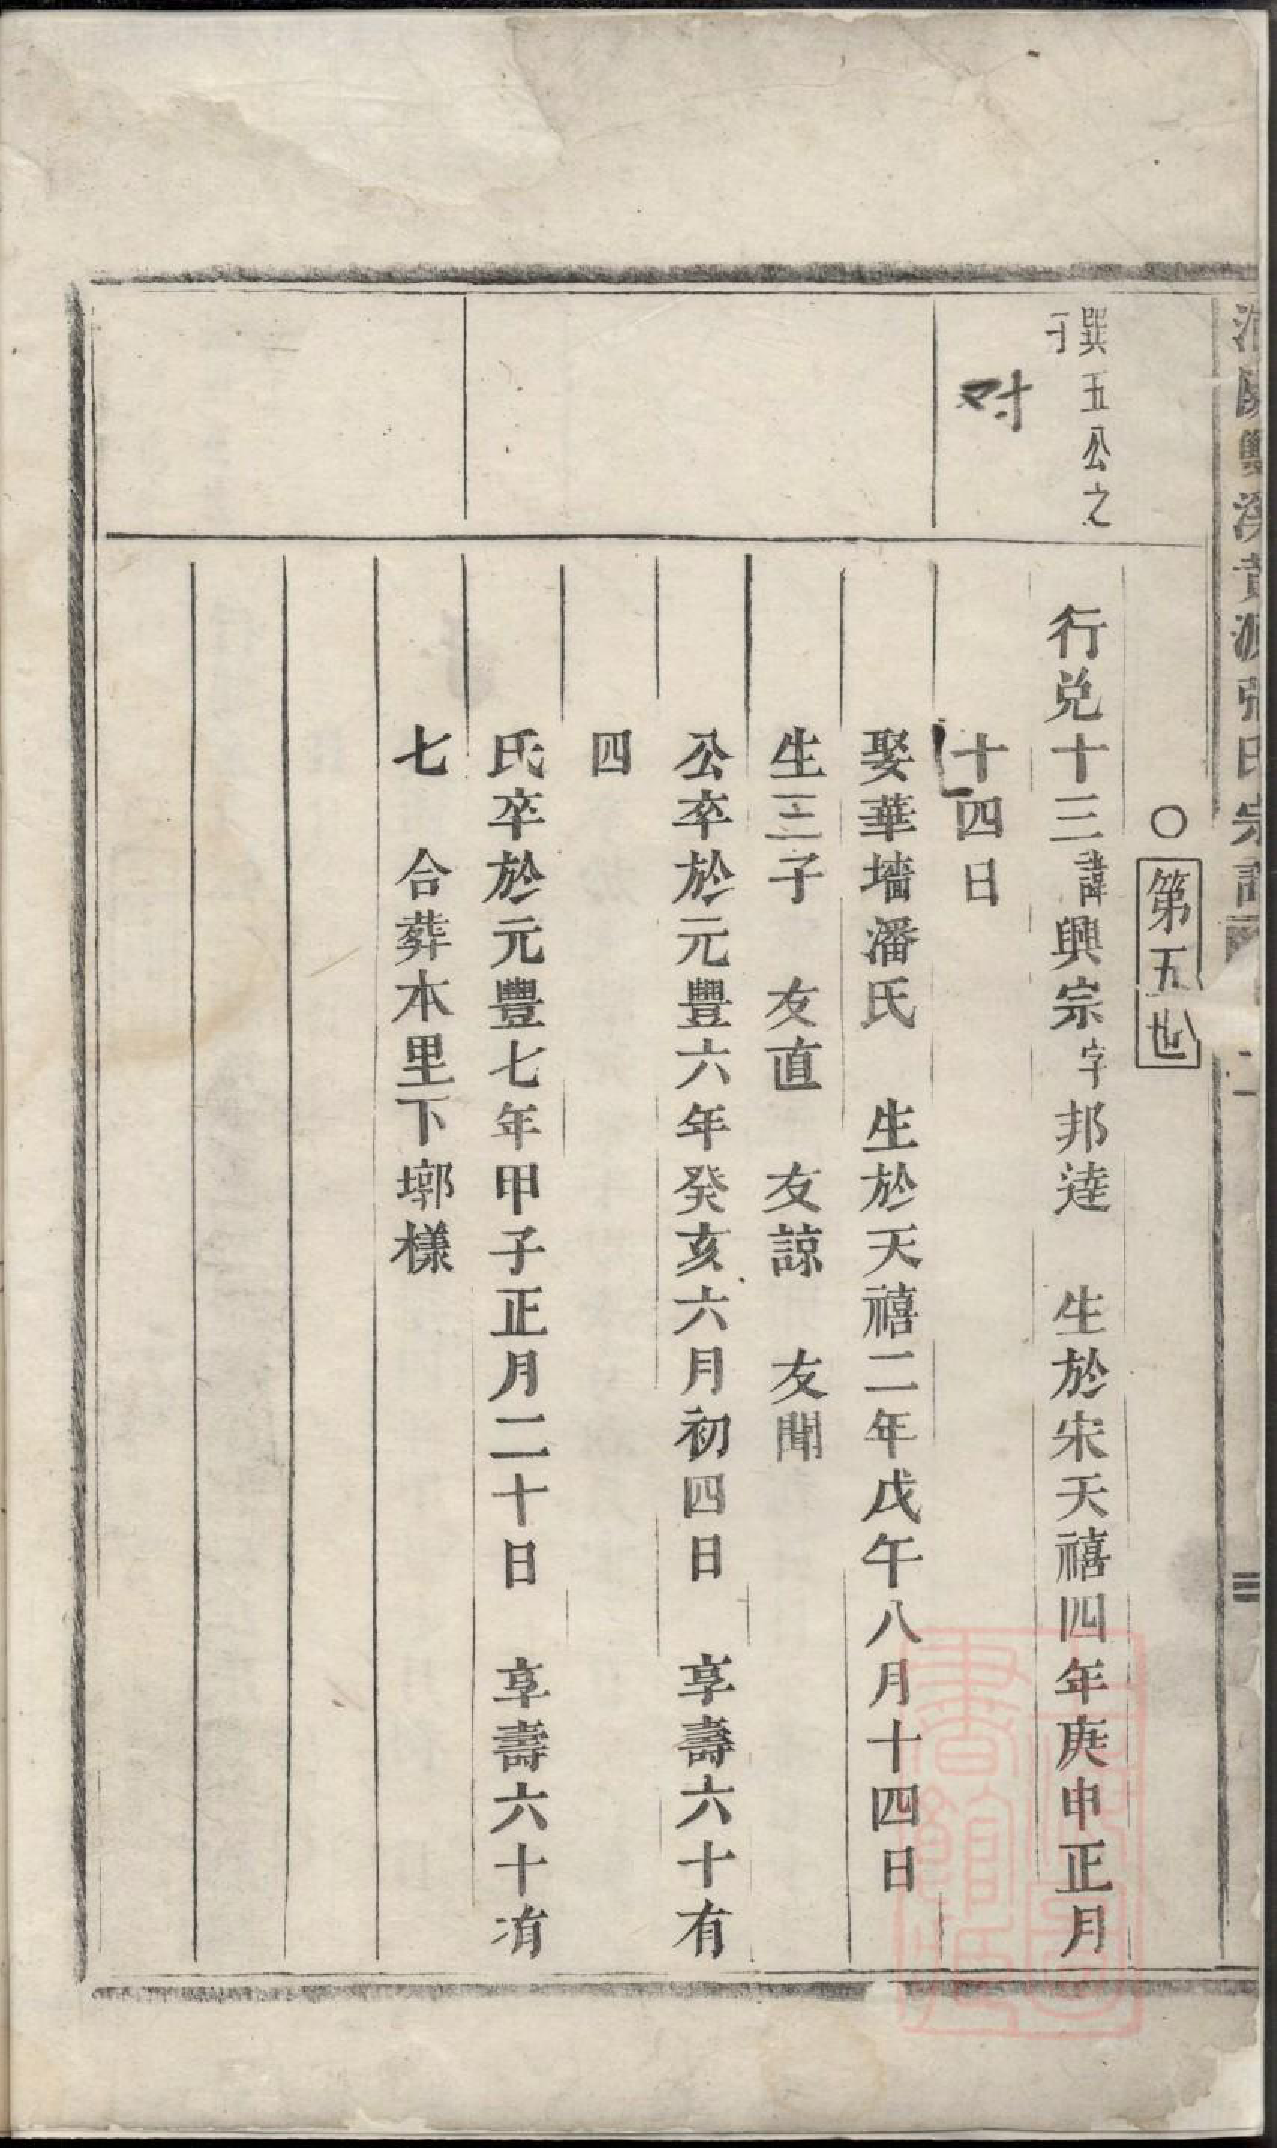 第五世
巽五公之
子
对
行兌十三諱興宗字邦逵　生於宋天禧四年庚申正月
十四日
娶華墻潘氏　生於天禧二年戊午八月十四日
生三子　友直　友諒　友聞
公卒於元豐六年癸亥六月初四日　享壽六十有
四
氏卒於元豐七年甲子正月二十日　享壽六十有
七　合葬木里下墎樣